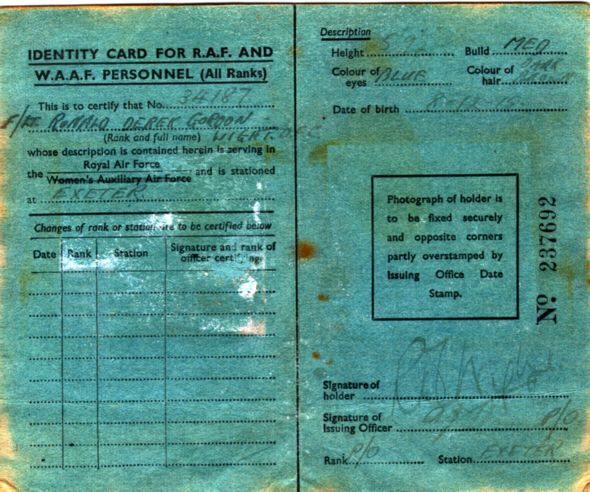 IDENTITY CARD FOR R.A.F. AND
W.A.A.F. PERSONNEL (All Ranks)
This is to certify that No. 34187
RONALD DEREK GORDON
(Rank and full name) WIGHT
whose description is contained herein is serving in
Royal Air Force
the Women's Auxiliary Air Force and is stationed
at EXETER
Changes of rank or station are to be certified below
Date Rank Station Signature and rank of officer certifying
Description
Height Build MED
Colour of eyes BLUE Colour of hair DARK
Date of birth
Photograph of holder is
to be fixed securely
and opposite corners
partly overstamped by
Issuing Office Date
Stamp.
No 237692
Signature of holder
Signature of Issuing Officer P/O
Rank P/O Station EXETER